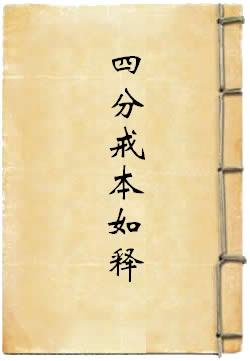 四分戒本如释